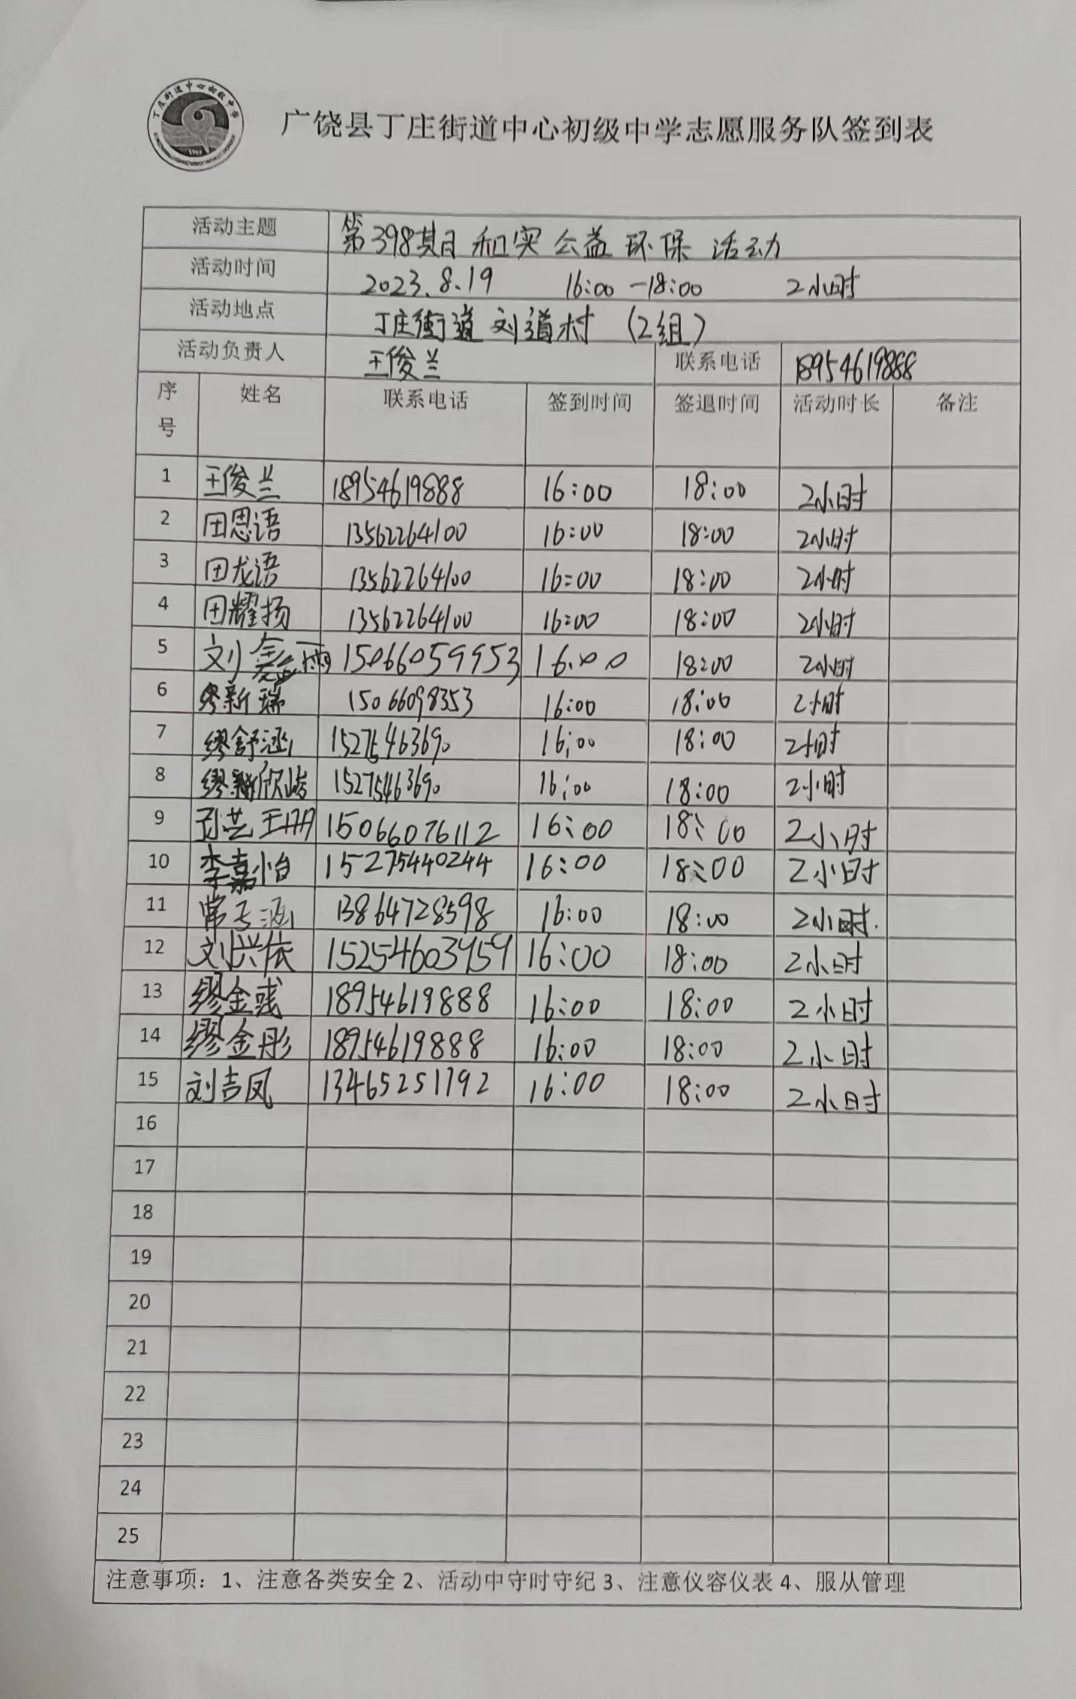 丁庄街道中心初级中学
广饶县丁庄街道中心初级中学志愿服务队签到表
活动主题 第398期 和实公益环保 活动
活动时间 2023.8.19 16:00-18:00 2小时
活动地点 丁庄街道刘道村(2组)
活动负责人 王俊兰 联系电话 18954619888
序号 姓名 联系电话 签到时间 签退时间 活动时长 备注
1 王俊兰 18954619888 16:00 18:00 2小时
2 田恩语 13562264100 16:00 18:00 2小时
3 田龙语 13562264100 16:00 18:00 2小时
4 田耀扬 13562264100 16:00 18:00 2小时
5 刘 雨 15066059953 16:00 18:00 2小时
6 新瑞 15066098353 16:00 18:00 2小时
7 缪舒涵 15275463690 16:00 18:00 2小时
8 缪 欣 15275463690 16:00 18:00 2小时
9 孙芸玥 15066076112 16:00 18:00 2小时
10 李嘉怡 15275440244 16:00 18:00 2小时
11 常 涵 13864728598 16:00 18:00 2小时.
12 刘兴依 15254603959 16:00 18:00 2小时
13 缪金彧 18954619888 16:00 18:00 2小时
14 缪金彤 18954619888 16:00 18:00 2小时
15 刘吉凤 13465251792 16:00 18:00 2小时
16
17
18
19
20
21
22
23
24
25
注意事项：1、注意各类安全 2、活动中守时守纪 3、注意仪容仪表 4、服从管理